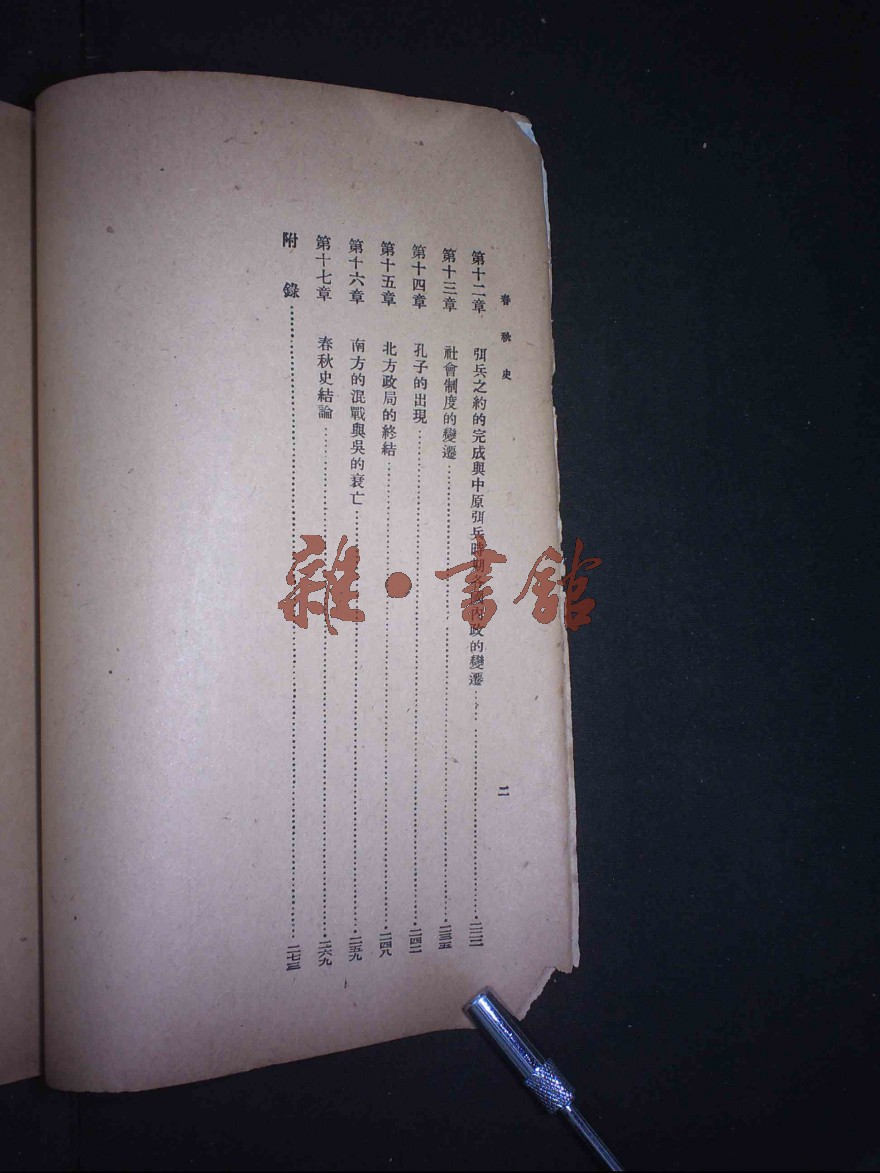 春秋史 二
第十二章 弭兵之約的完成與中原弭兵時期各國內政的變遷
第十三章 社會制度的變遷 二三五
第十四章 孔子的出現 二四二
第十五章 北方政局的終結 二四八
第十六章 南方的混戰與吳的衰亡 二五九
第十七章 春秋史結論 二六九
附錄 二七三
雜·書館